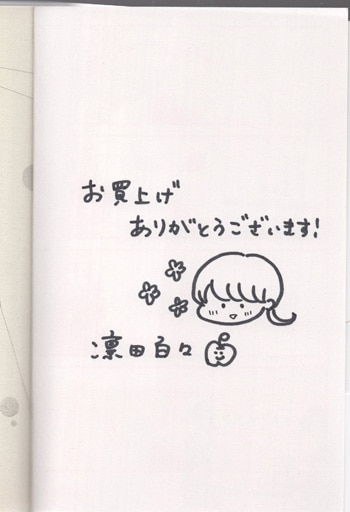 お買上げ
ありがとうございます!
凛田百々